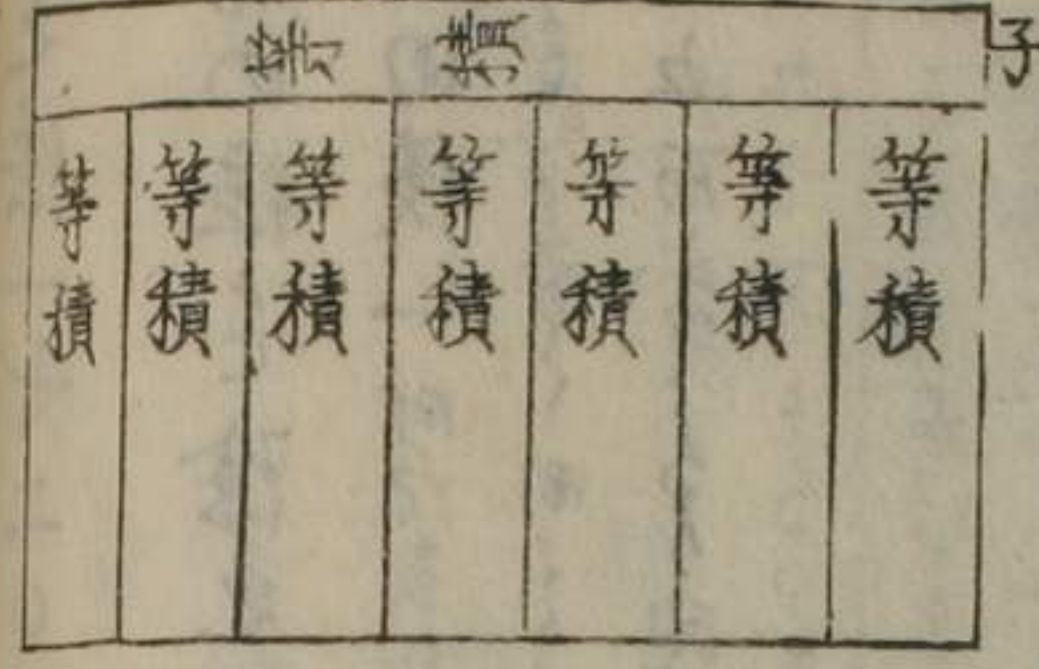 子
等積
等積
等積
等積
等積
等積
等積
等積